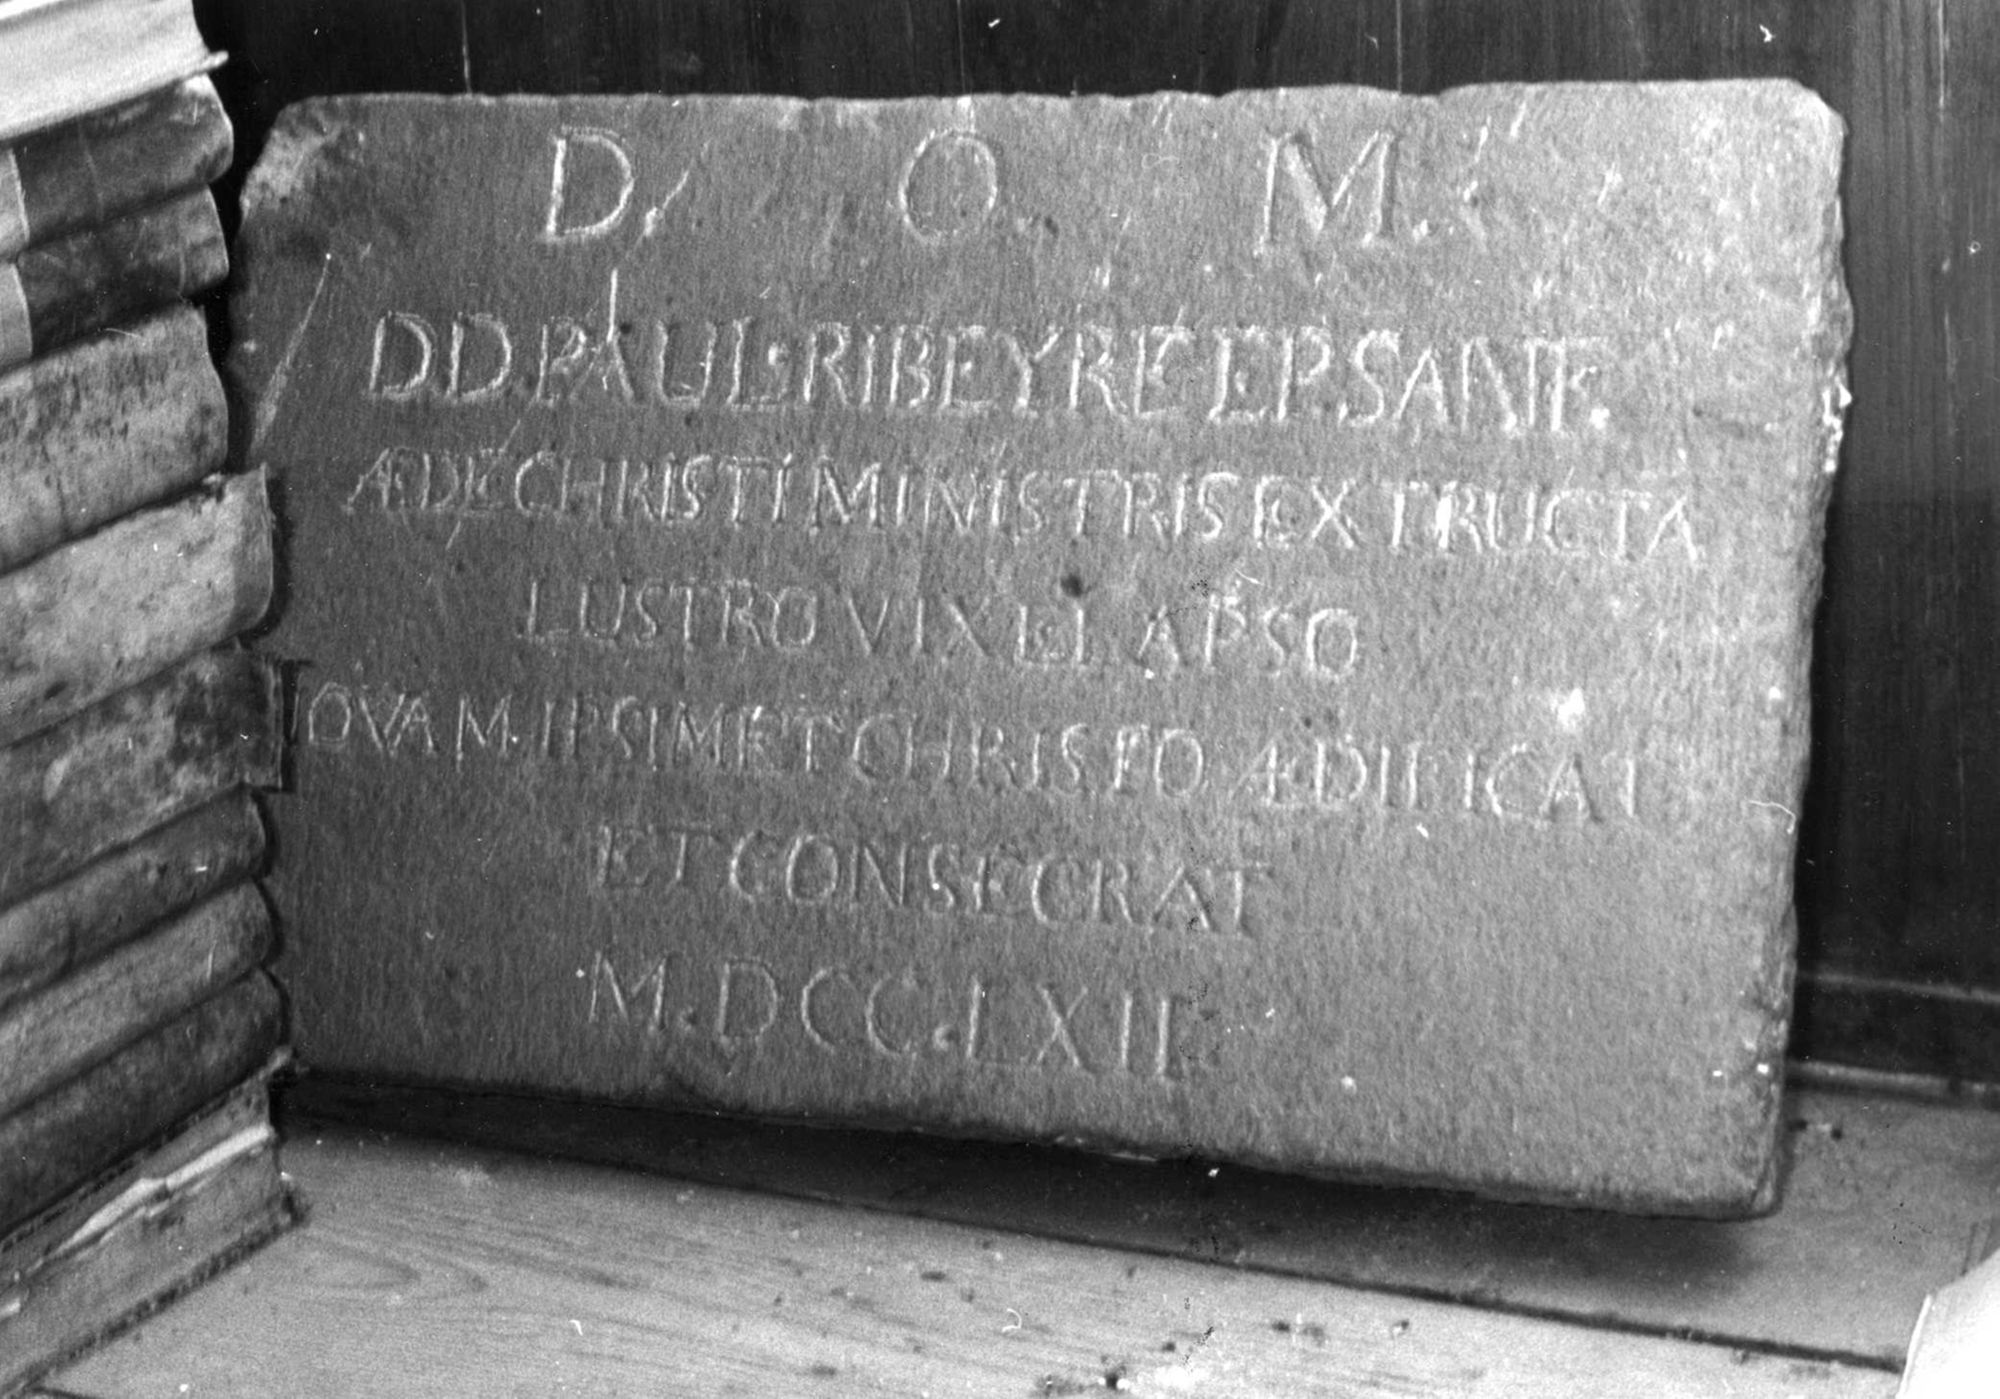 D. O. M.
DD. PAUL. RIBEYRE EP. SANF.
ÆDE CHRISTI MINISTRIS EXTRUCTA
LUSTRO VIX ELAPSO
NOVAM. IPSIMET CHRISTO ÆDIFICAT
ET CONSECRAT
M.DCC.LXII